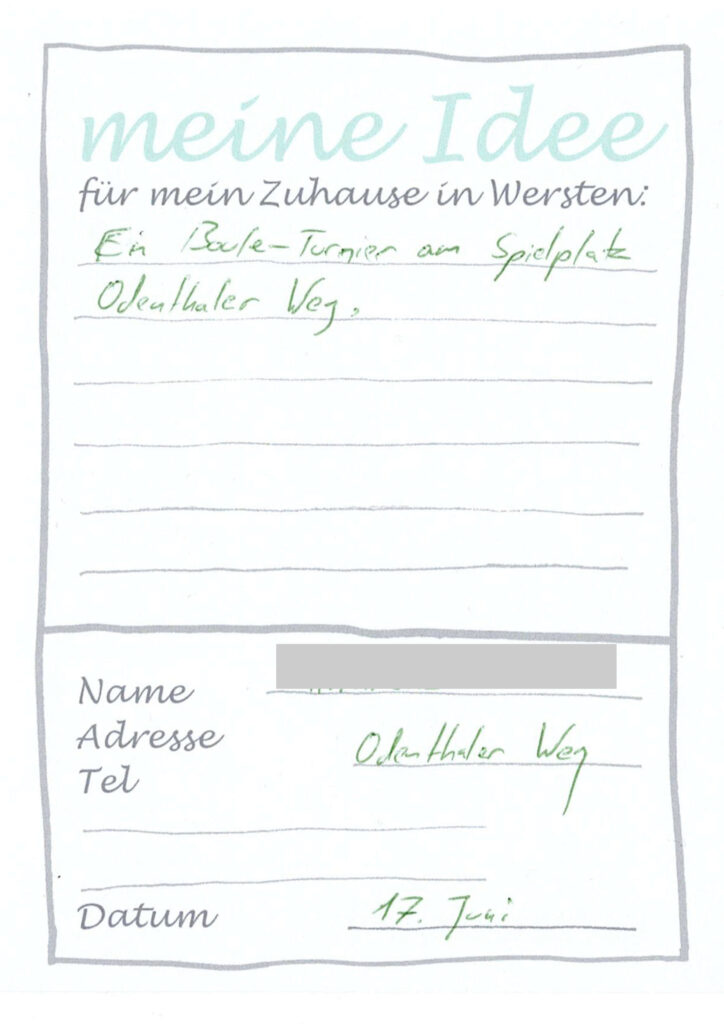 meine Idee
für mein Zuhause in Wersten:
Ein Boule-Turnier am Spielplatz
Odenthaler Weg.
Name
Adresse Odenthaler Weg
Tel
Datum 17. Juni